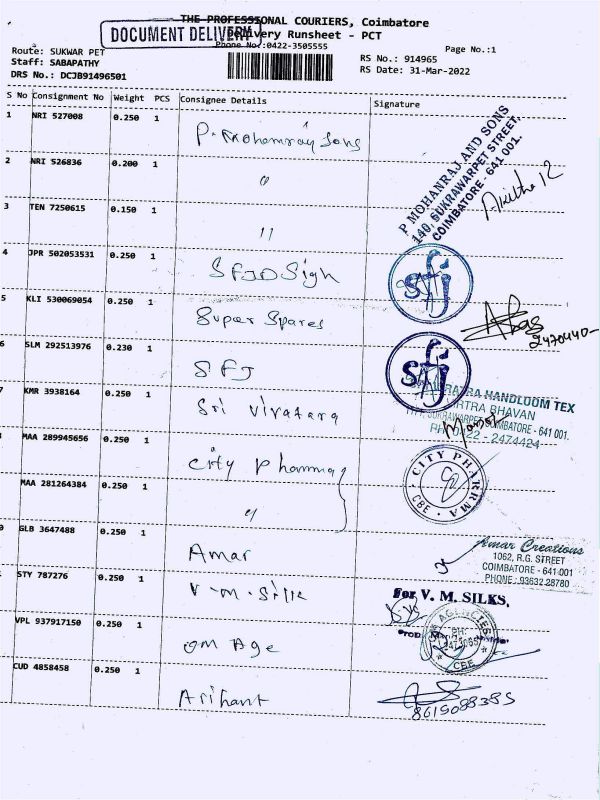 THE PROFESSIONAL COURIERS, Coimbatore
DOCUMENT DELIVERY
Delivery Runsheet - PCT
Phone No:0422-3505555
Page No.:1
Route: SUKWAR PET
Staff: SABAPATHY
DRS No.: DCJB91496501
RS No.: 914965
RS Date: 31-Mar-2022
S No Consignment No Weight PCS Consignee Details Signature
1 NRI 527008 0.250 1 P. Mohamraj Sons
P MOHANRAJ AND SONS
140, SUKRAWARPET STREET,
COIMBATORE - 641 001.
2 NRI 526836 0.200 1 "
3 TEN 7250615 0.150 1 11
4 JPR 502053531 0.250 1 SFJD Sigh
sfj
5 KLI 530069054 0.250 1 Super Spares
2470440
6 SLM 292513976 0.230 1 SFJ
sfj
7 KMR 3938164 0.250 1 Sri
HANDLOOM TEX
BHAVAN
SUKRAWARPET COIMBATORE - 641 001.
PH: 0422 - 2474424
MAA 289945656 0.250 1 City Phamma
CITY PHARMA
CBE
MAA 281264384 0.250 1 "
GLB 3647488 0.250 1 Amar
Amar Creations
1062, R.G. STREET
COIMBATORE - 641 001
PHONE : 93632 28780
STY 787276 0.250 1 V-M-Silk
for V. M. SILKS,
VPL 937917150 0.250 1 OM Age
AGENCIES
CBE
CUD 4858458 0.250 1 Arihant
8619098385